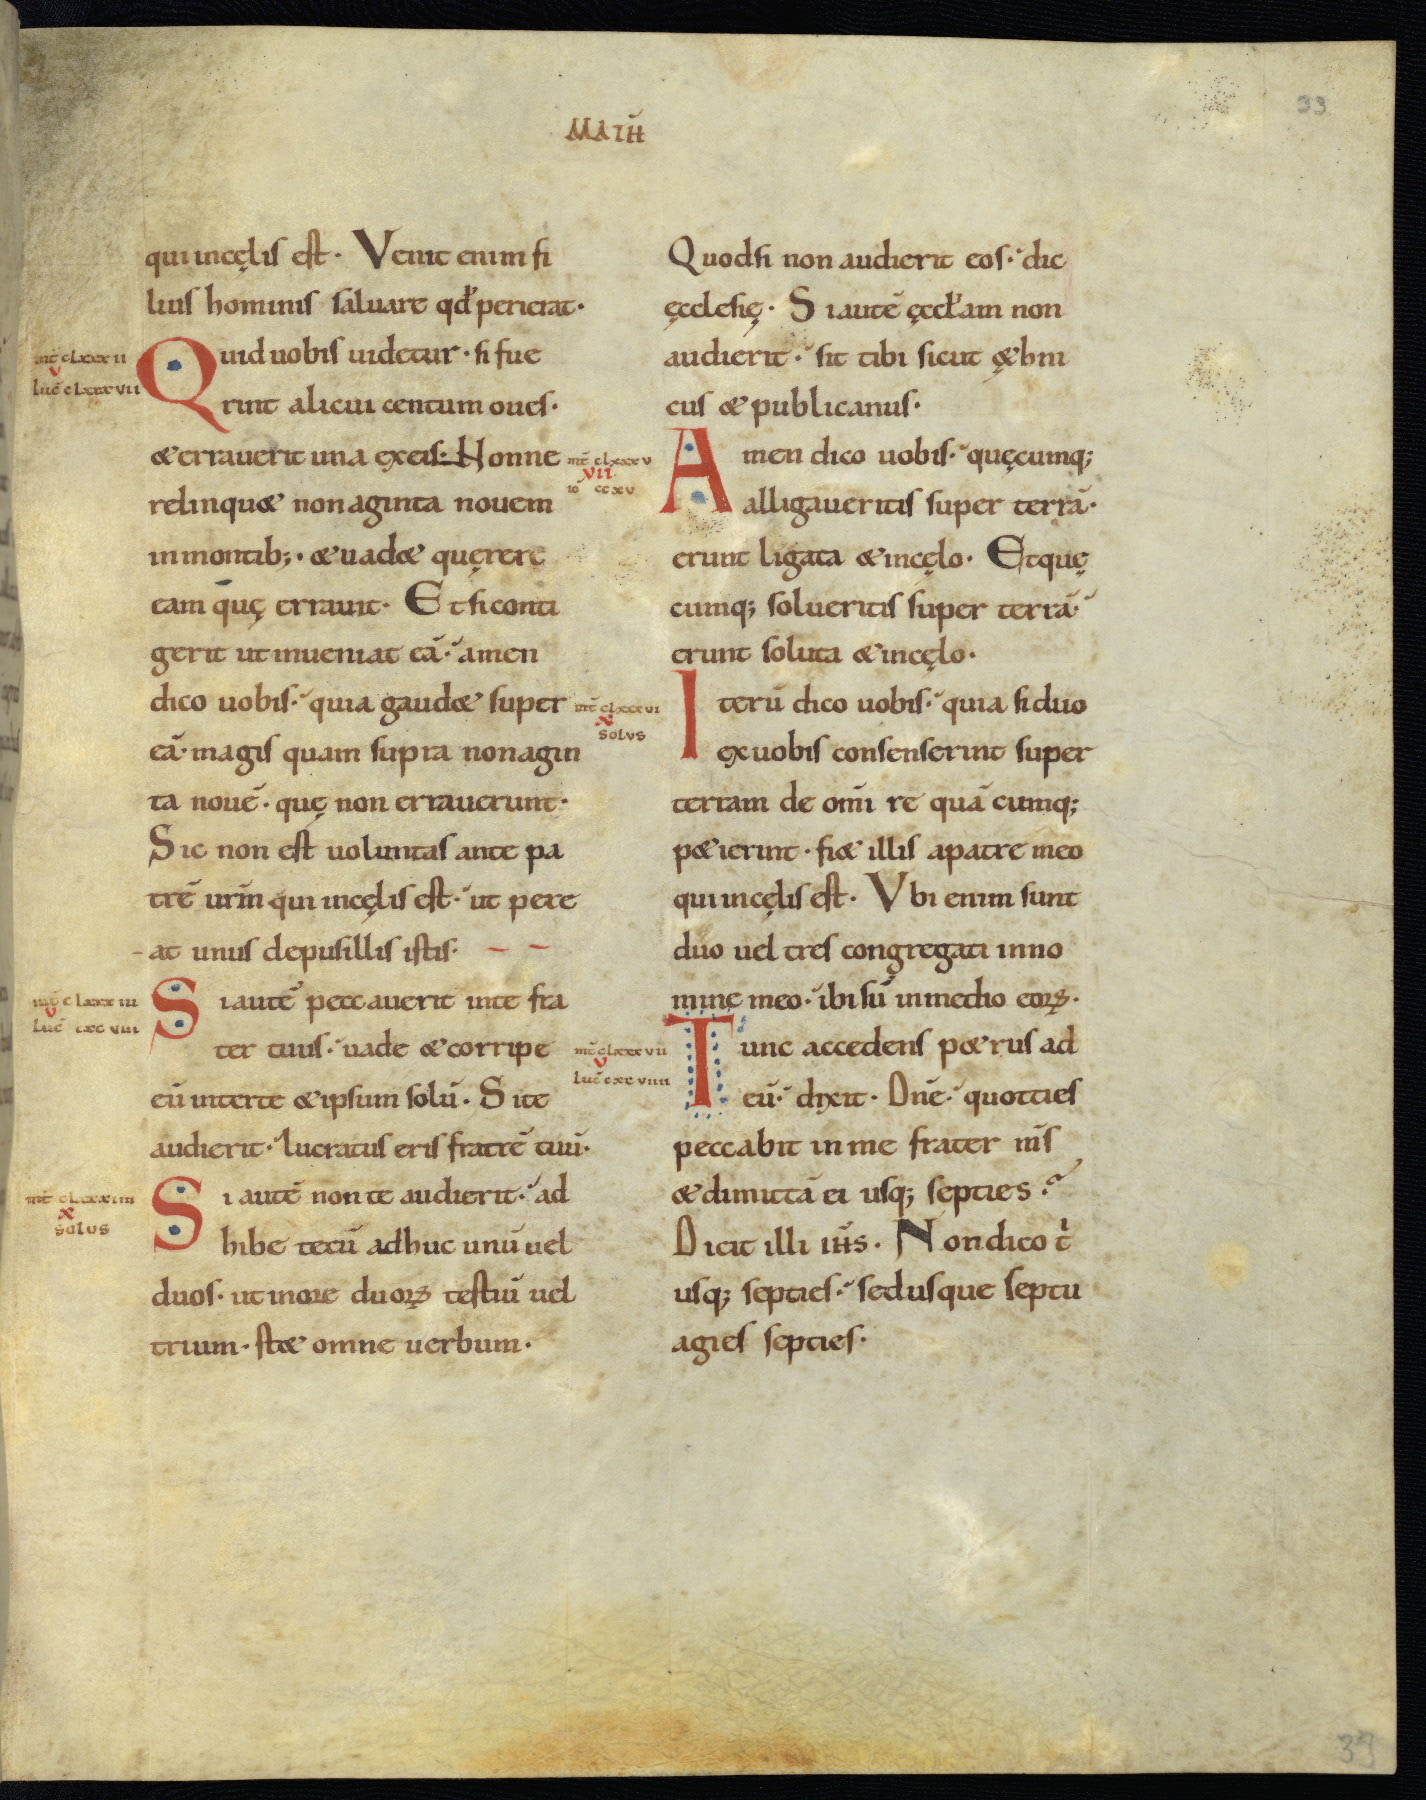 MATH̅
33
qui incęlis est · Venit enim fi
lius hominis saluare qđ perierat ·
mt̅ clxxxii
v
luc̅ clxxxvii
Quid uobis uidetur · si fue
rint alicui centum oues ·
& errauerit una exeis · Nonne
relinqu& nonaginta nouem
inmontib; · & uad& quęrere
eam quę errauit · Et si conti
gerit ut inueniat eā · amen
dico uobis · quia gaud& super
eā · magis quam supra nonagin
ta nouē · quę non errauerunt ·
Sic non est uoluntas ante pa
trē urm̅ qui incęlis est · ut pere
at unus depusillis istis ·
mt̅ clxxxiii
v
luc̅ cxcviii
Siautē peccauerit inte fra
ter tuus · uade & corripe
eū interte & ipsum solū · Si te
audierit · lucratus eris fratrē tuū ·
mt̅ clxxxiiii
x
solus
Si autē non te audierit · ad
hibe tecū adhuc unū uel
duos · ut inore duoꝝ testiū uel
trium · st& omne uerbum ·
Quodsi non audierit eos · dic
ęcclesię · Si autē ęccłam non
audierit · sit tibi sicut &hni
cus & publicanus ·
mt̅ clxxxv
vii
io̅ ccxv
Amen dico uobis · quęcumq;
alligaueritis super terrā ·
erunt ligata & incęlo · Etquę
cumq; solueritis super terrā ·
erunt soluta & incęlo ·
mt̅ clxxxvi
x
solus
Iterū dico uobis · quia si duo
exuobis consenserint super
terram de om̅i re quācumq;
p&ierint · fi& illis apatre meo
qui incęlis est · Vbi enim sunt
duo uel tres congregati inno
mine meo · ibi sū inmedio eoꝝ ·
mt̅ clxxxvii
v
luc̅ cxcviiii
Tunc accedens p&rus ad
eū · dixit · Dn̅e · quotties
peccabit in me frater m̅s
& dimittā ei usq; septies ·
Dicit illi ih̅s · Non dico t̉
usq; septies · sed usque septu
agies septies ·
39